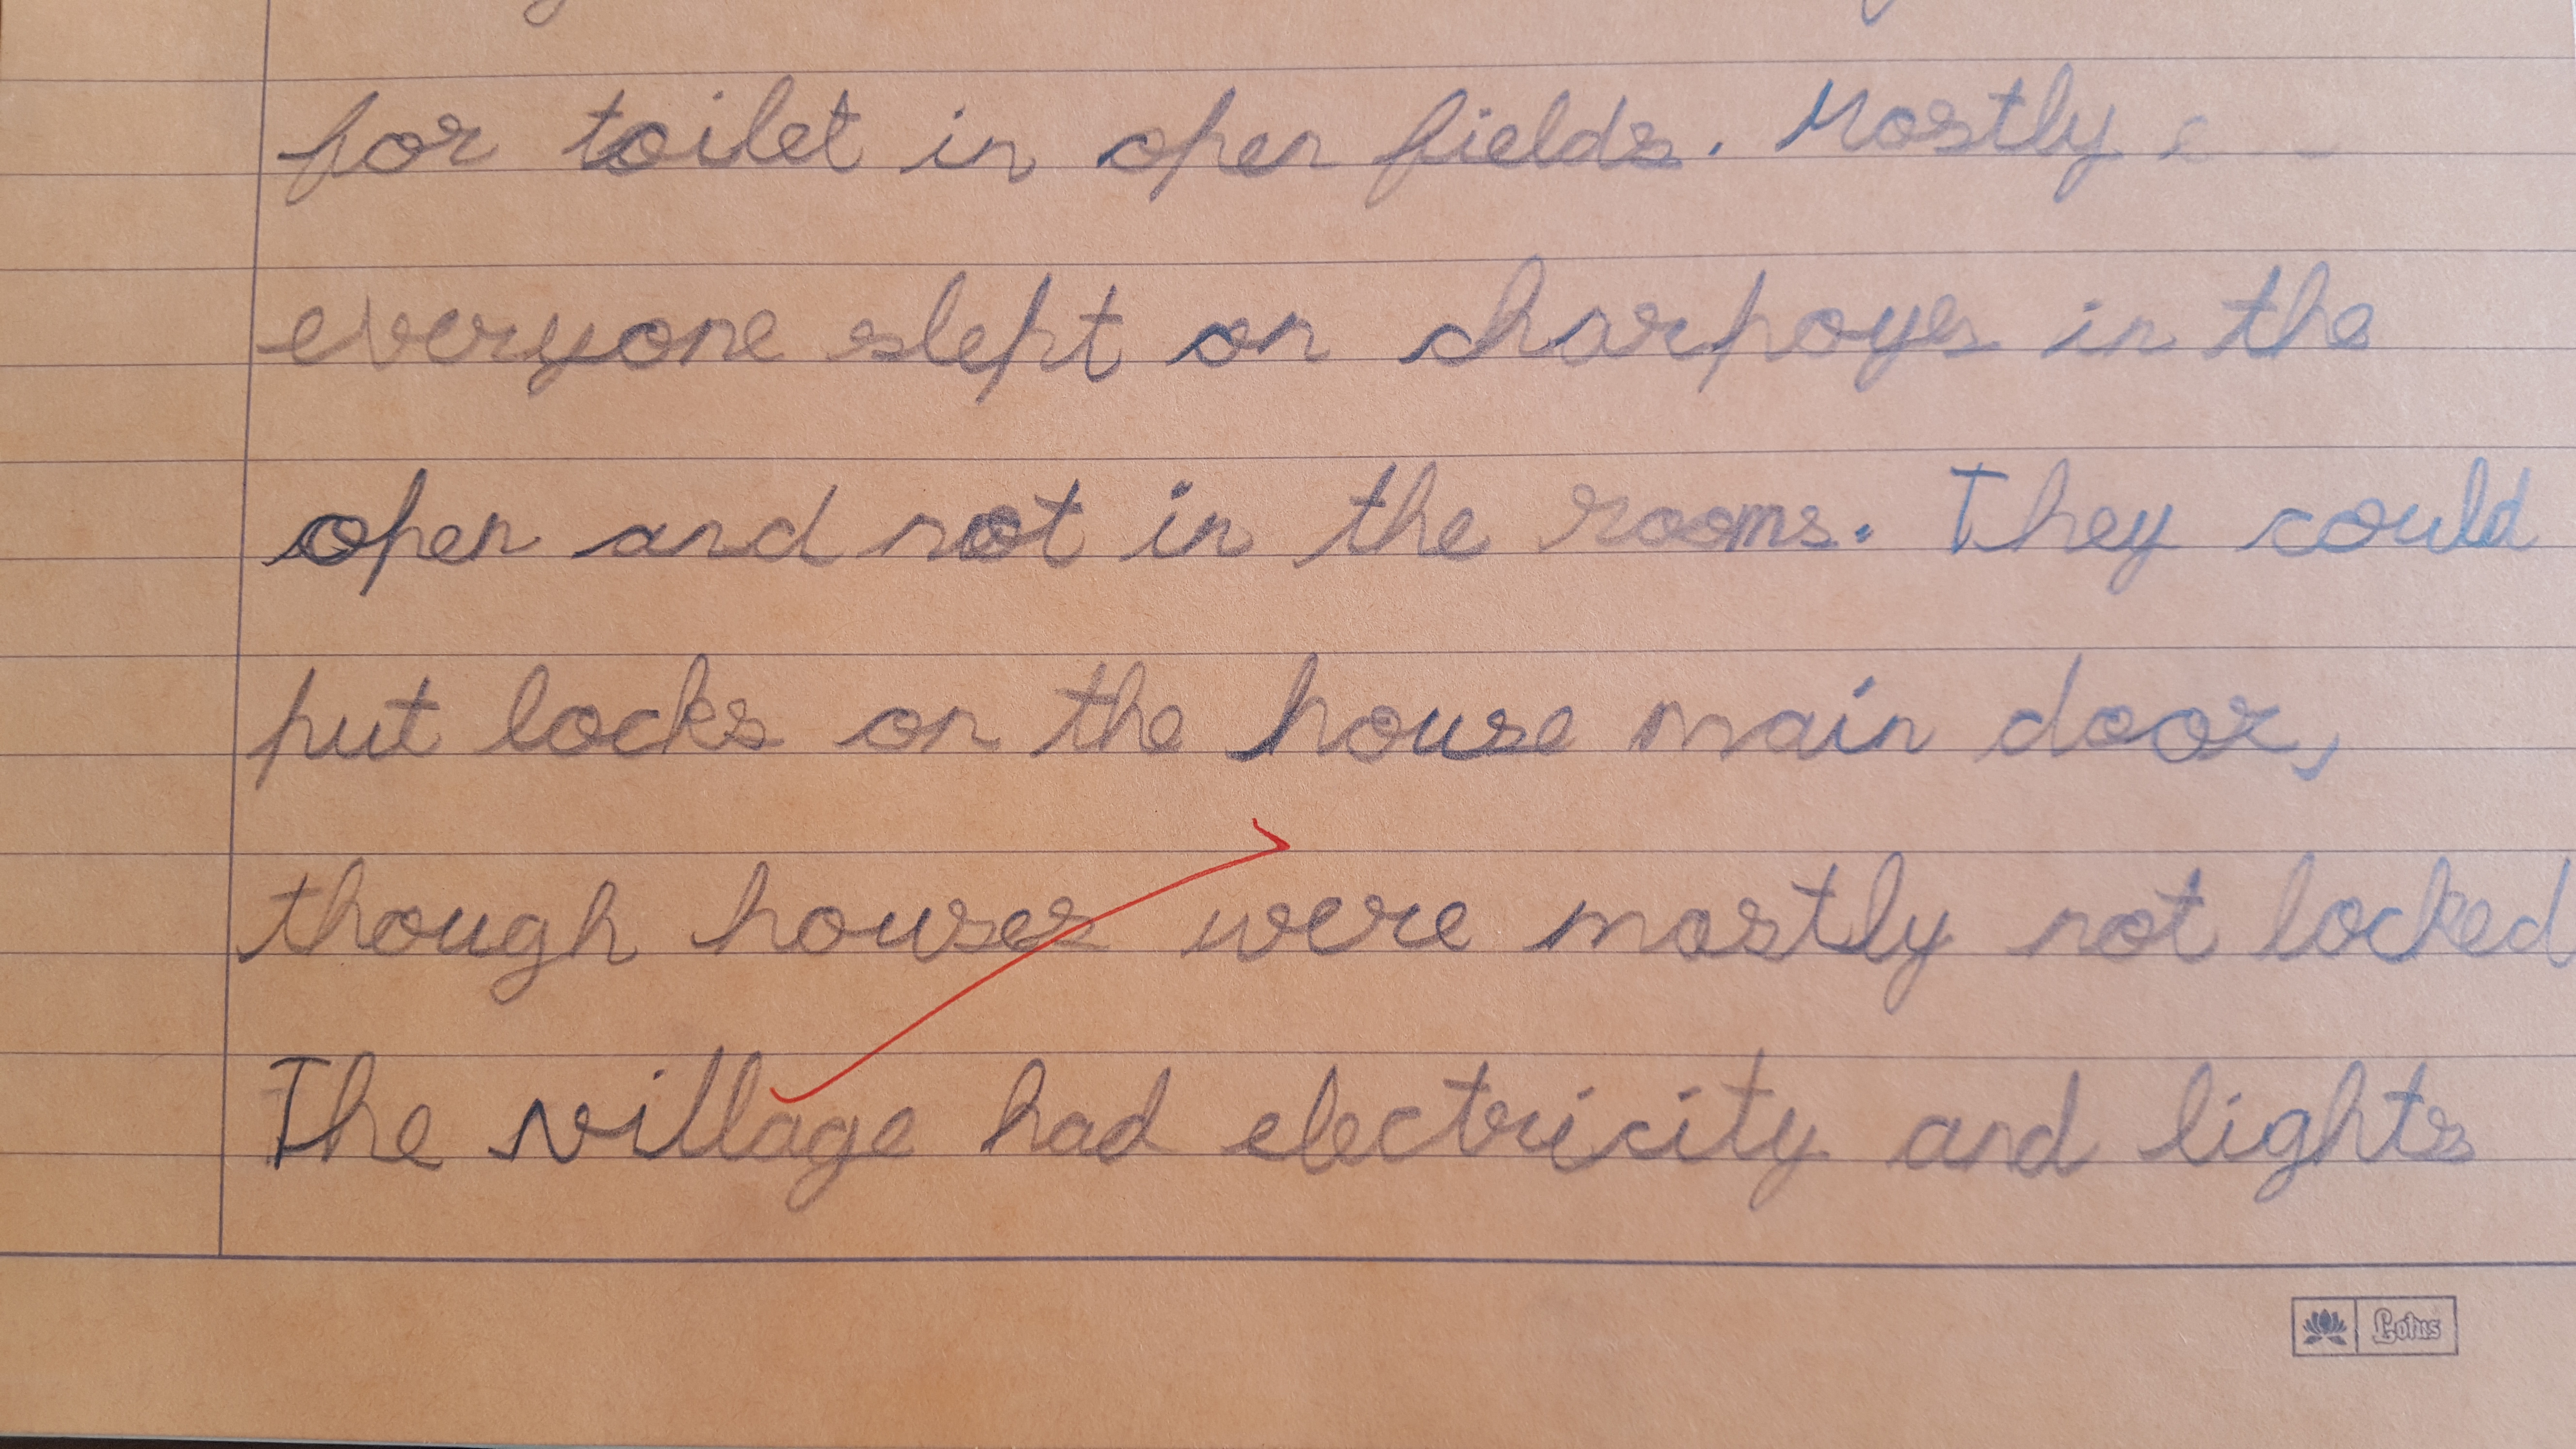 for toilet in open fields. Mostly
everyone slept on charpoyes in the
open and not in the rooms. They could
put locks on the house main door,
though houses were mostly not locked
The village had electricity and lights
Lotus